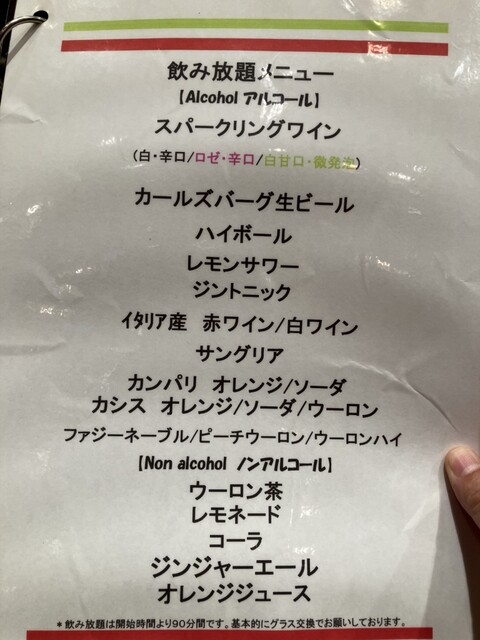 飲み放題メニュー
【Alcohol アルコール】
スパークリングワイン
(白・辛口/ロゼ・辛口/白甘口・微発泡)
カールズバーグ生ビール
ハイボール
レモンサワー
ジントニック
イタリア産 赤ワイン/白ワイン
サングリア
カンパリ オレンジ/ソーダ
カシス オレンジ/ソーダ/ウーロン
ファジーネーブル/ピーチウーロン/ウーロンハイ
【Non alcohol ノンアルコール】
ウーロン茶
レモネード
コーラ
ジンジャーエール
オレンジジュース
*飲み放題は開始時間より90分間です。基本的にグラス交換でお願いしております。